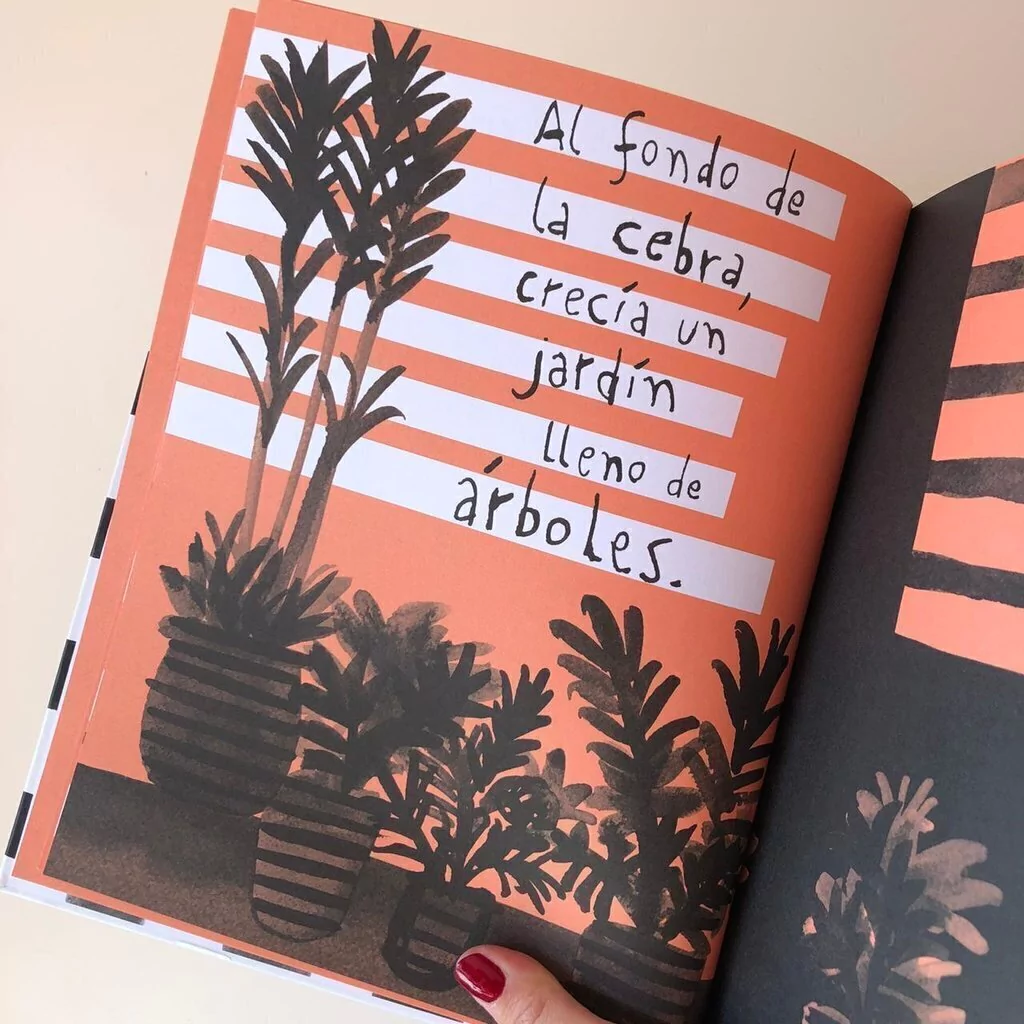 Al fondo de
la cebra,
crecía un
jardín
lleno de
árboles.